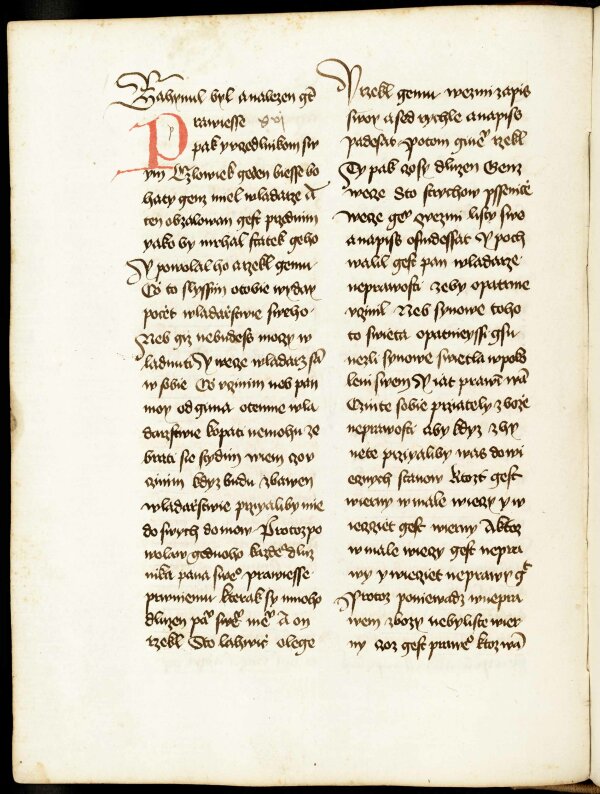 Zahynul byl a nalezen gest
Prawiesse xvi
pak y vrzednikom sw
ym Czlowiek geden biesse bo
haty genz miel wladarze A
ten obzalowan gest przed nim
yako by mrhal statek geho
Y powolal ho a rzekl gemu
Czo to slyssim o tobie wyday
pocet wladarstwie sweho
Neb giz nebudess mocy w
ladnuti Y wece wladarz sam
w sobie Czo vczinim neb pan
moy odgima ote mne wla
darstwie kopati nemohu ze
brati sie stydim wiem czo v
czinim kdyz budu zbawen
wladarstwie przygaliby mie
do swych domow Protoz po
wolaw gednoho kazdeho dluz
nika pana sweho prawiesse
prwniemu kterak sy mnoho
dluzen panu swemu memu A on
rzekl Sto lahwic olege
Y rzekl gemu wezmi zapis
swoy a sed rychle a napiss
padesat Potom ginemu rzekl
Ty pak czosy dluzen Genz
wece Sto strychow pssenice
Wece gemu wezmi listy swe
a napiss osmdessat Y poch
walil gest pan wladarze
neprawosti zeby opatrne
vczinil Neb synowe toho
to swieta opatrnieyssi gsu
nezli synowe swietla w poko
leni swem Y iat prawim wam
Czinte sobie przately z boze
neprawosti aby kdyz zhy
nete przigaliby was do wi
ecznych stanow Ktoz gest
wierny w male wiecy y w
iecziet gest wierny A ktoz
w male wiecy gest nepra
wy y wiecziet neprawy gest
Protoz poniewadz w nepra
wem zbozy nebyliste wier
ny coz gest praweho kto wam